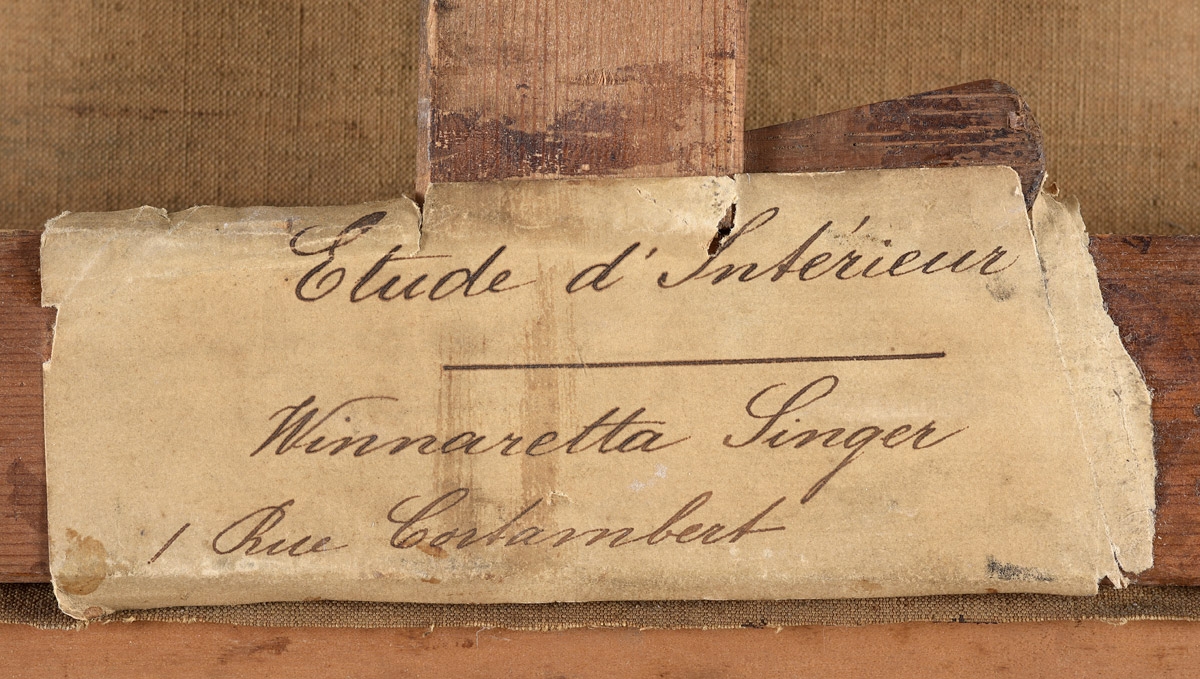 Etude d'Intérieur
Winnaretta Singer
1 Rue Cortambert